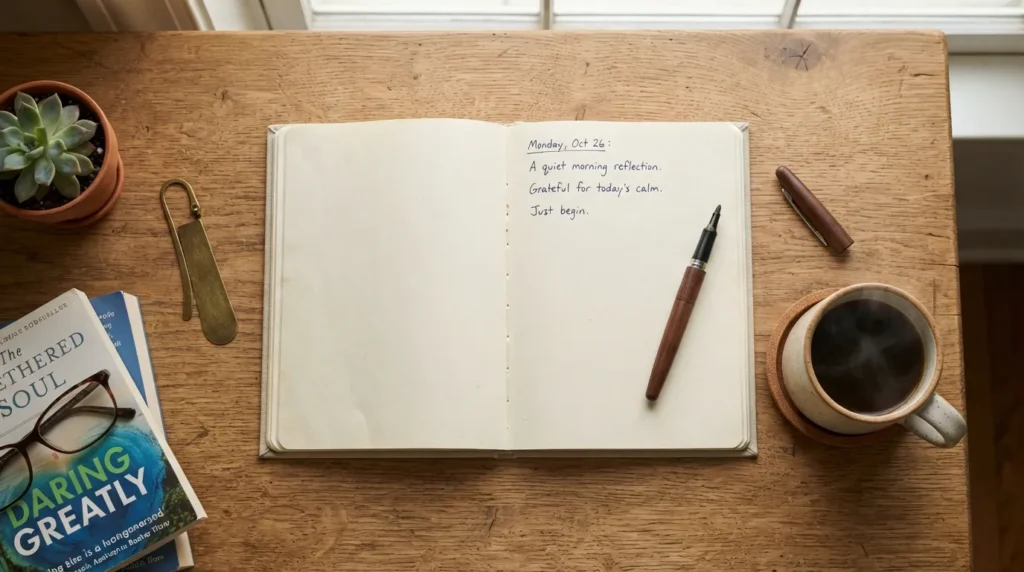 Monday, Oct 26:
A quiet morning reflection.
Grateful for today's calm.
Just begin.
The
ETHERED
SOUL
DARING
GREATLY